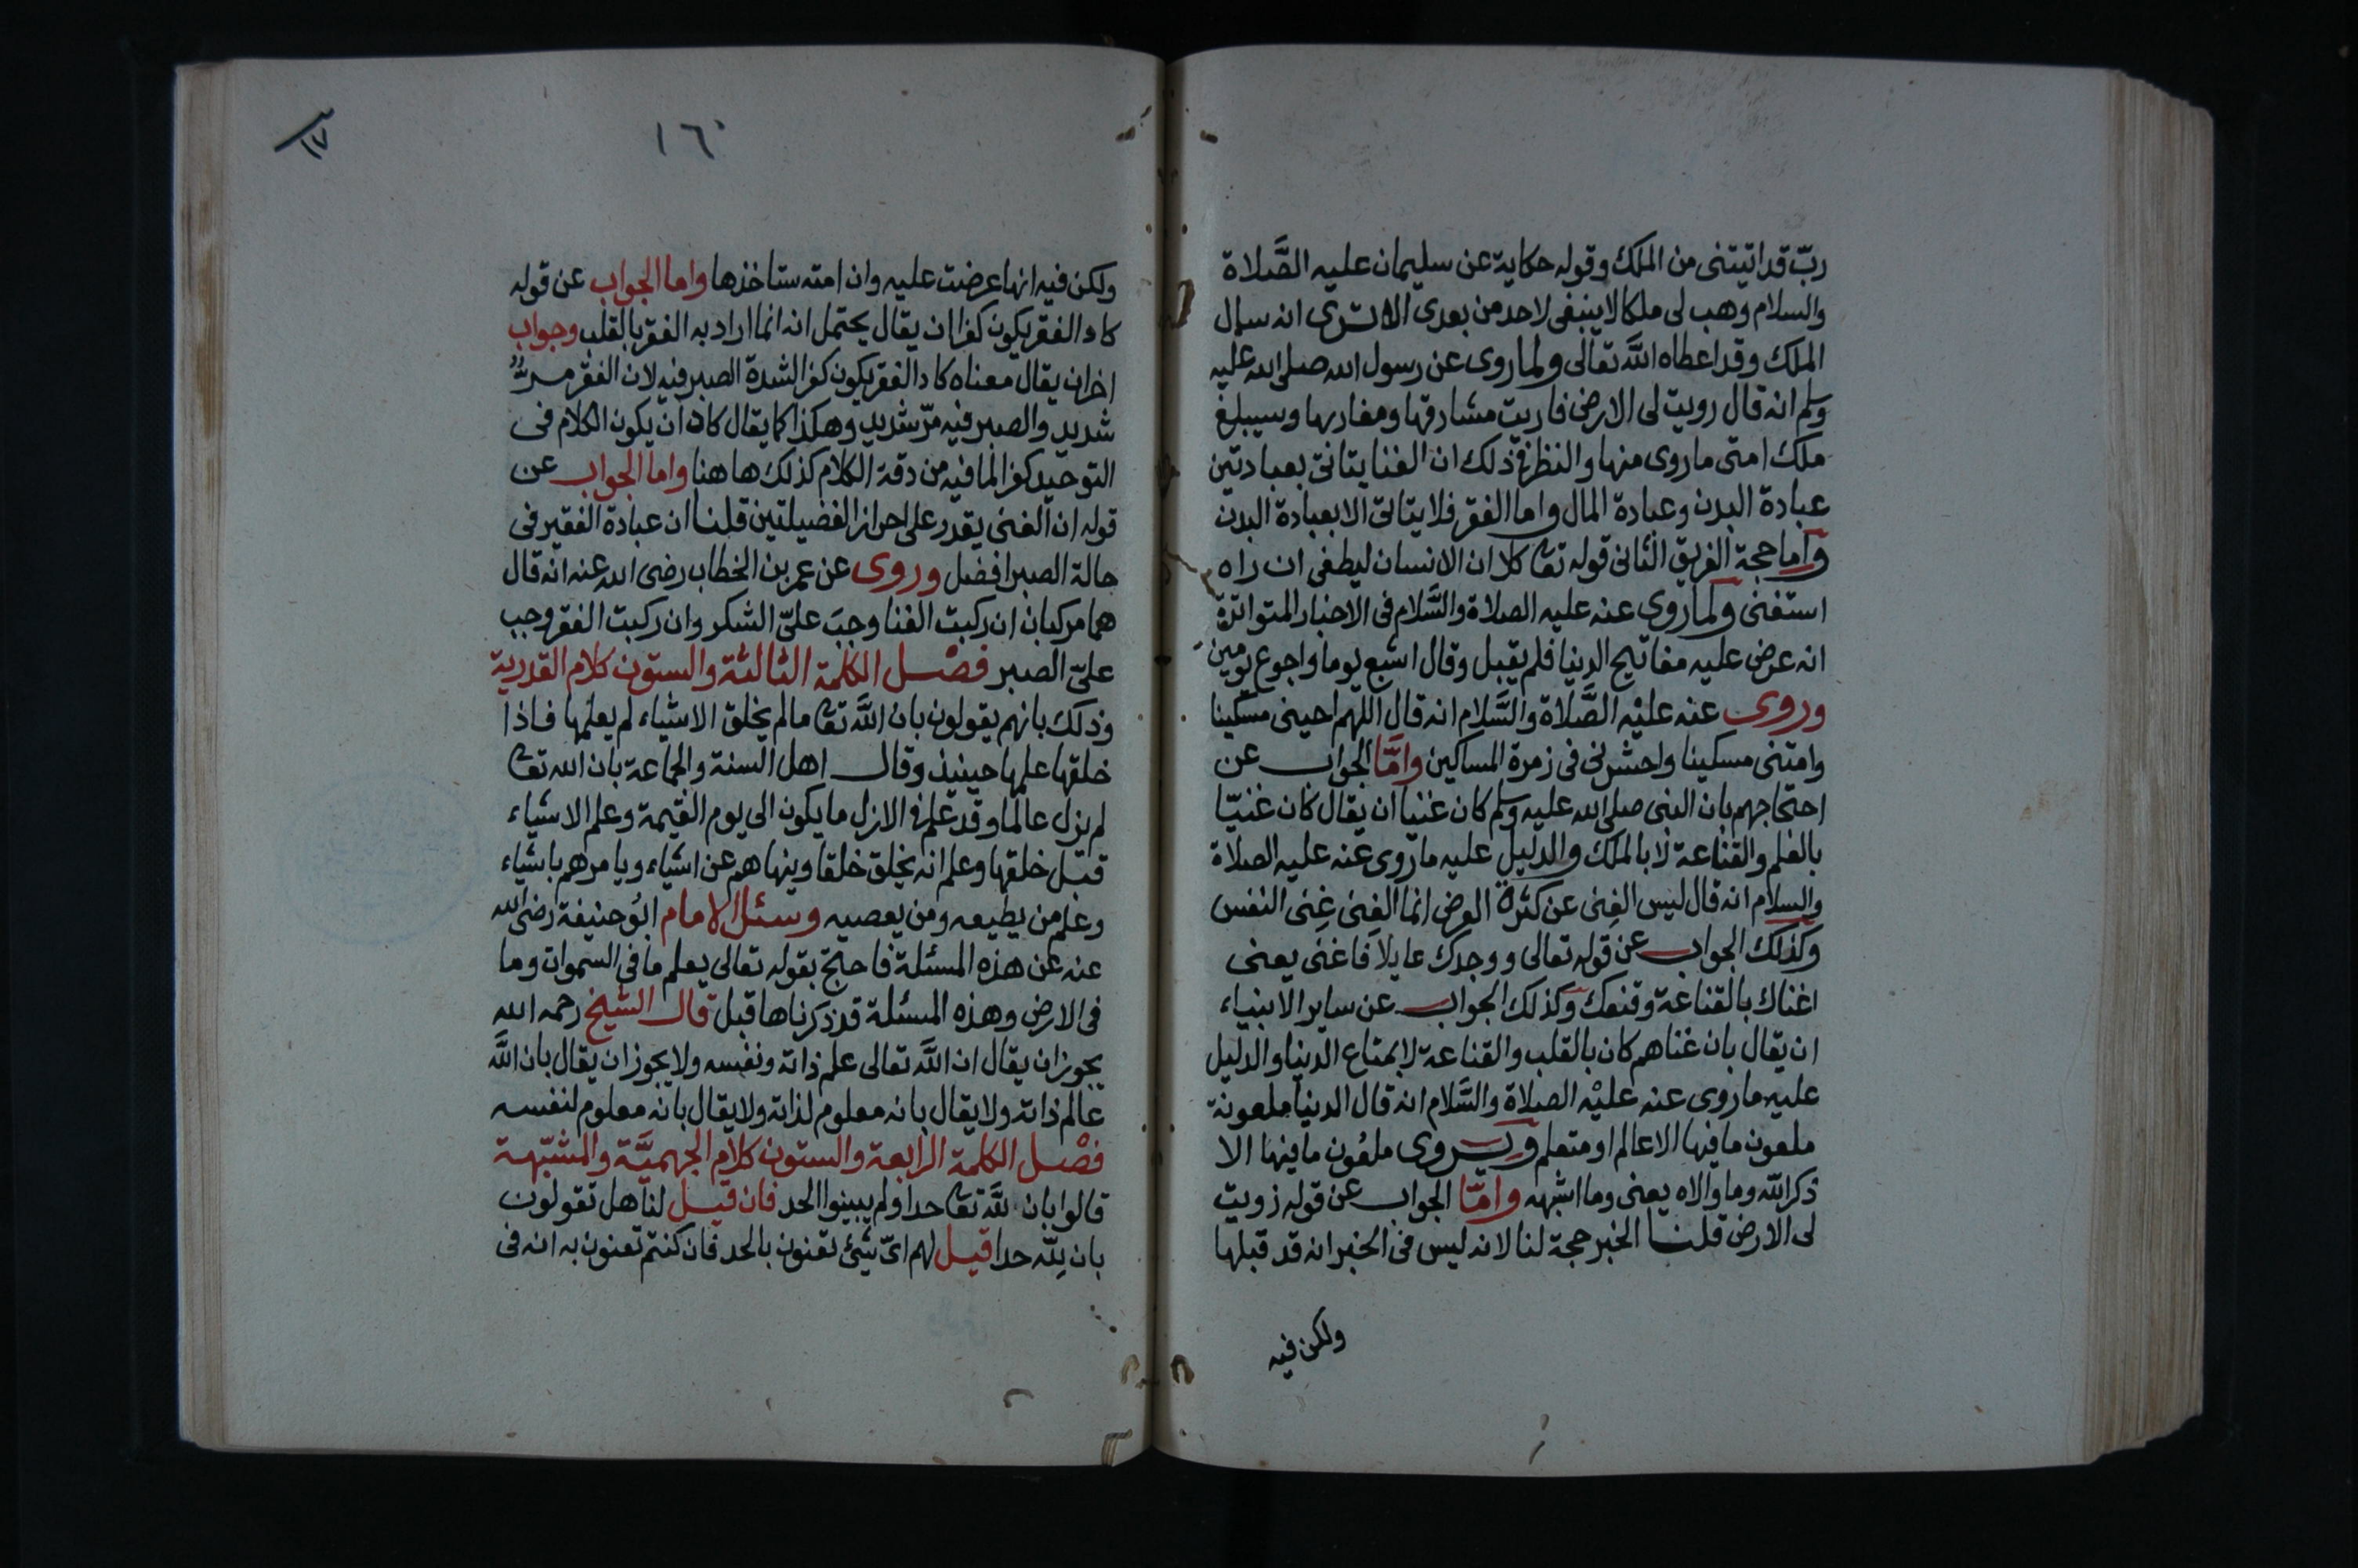 ربّ قد اتيتنى من الملك وقوله حكاية عن سليمان عليه الصَّلاة
والسلام وهب لى ملكا لا ينبغى لاحد من بعدى الا ترى انه سال
الملك وقد اعطاه اللَّه تعالى ولما روى عن رسول الله صلى الله عليه
وسلم انه قال رويت لى الارض فاريت مشارقها ومغاربها وسيبلغ
ملك امتى ما روى منها والنظر فى ذلك ان الغنا يتانى بعبادتين
عبادة البدن وعبادة المال واما الفقر فلا يتاتى الا بعبادة البدن
واما حجة الفريق الثانى قوله تعا كلا ان الانسان ليطغى ان راه
استغنى ولما روى عنه عليه الصلاة والسَّلام فى الاخبار المتواترة
انه عرض عليه مفاتيح الدنيا فلم يقبل وقال اشبع يوما واجوع يومين
وروى عنه عليْه الصَّلاة والسَّلام انه قال اللهم احينى مسكينا
وامتنى مسكينا واحشرنى فى زمرة المساكين وامَّا الجواب عن
احتجاجهم بان النبى صلى الله عليه وسلم كان غنيا ان يقال كان غنيّا
بالعلم والقناعة لا بالملك والدليل عليه ما روى عنه عليه الصلاة
والسلام انه قال ليس الغِنى عن كثرة العرض انما الغِنى غِنَى النفس
وكذلك الجواب عن قوله تعالى ووجدك عايلا فاغنى يعنى
اغناك بالقناعة وقنعك وكذلك الجواب عن ساير الانبياء
ان يقال بان غناهم كان بالقلب والقناعة لا بمتاع الدنيا والدليل
عليه ما روى عنه عليْه الصلاة والسَّلام انه قال الدنيا ملعونة
ملعون ما فيها الا عالم او متعلم ويروى ملعُون ما فيها الا
ذكر اللّه وما والاه يعنى وما اشبهه وامَّا الجواب عن قوله زويت
لى الارض قلنا الخبر حجة لنا لانه ليس فى الخبر انه قد قبلها
ولكن فيه
١٦٠
١٧
ولكن فيه انها عرضت عليه وان امته ستاخذها واما الجواب عن قوله
كاد الفقر يكون كفرا ان يقال يحتمل انه انما اراد به الفقر بالقلب وجواب
اخر ان يقال معناه كاد الفقر يكون كفرا لشدة الصبر فيه لان الفقر مرٌّ
شديد والصبر فيه مرّ شديد وهكذا كما يقال كاد ان يكون الكلام فى
التوحيد كفرا لما فيه من دقة الكلام كذلك هاهنا واما الجواب عن
قوله ان الغنى يقدر على احراز الفضيلتين قلنا ان عبادة الفقير فى
حالة الصبر افضل وروى عن عمر بن الخطاب رضى الله عنه انه قال
هما مركبان ان ركبت الغنا وجبَ علىّ الشكر وان ركبت الفقر وجب
علىّ الصبر فصْل الكلمة الثالثة والستون كلام القدرية
وذلك بانهم يقولون بان اللَّه تعا ما لم يخلق الاشياء لم يعلمها فاذا
خلقها علمها حينيذ وقال اهل السنة والجماعة بان الله تعا
لم يزل عالما وقد علم فى الازل ما يكون الى يوم القيمة وعلم الاشياء
قبل خلقها وعلم انه يخلق خلقا وينهاهم عن اشياء ويامرهم باشياء
وعلم من يطيعه ومن يعصيه وسئل الامام ابُو حنيفة رضى الله
عنه عن هذه المسئلة فاحتج بقوله تعالى يعلم ما فى السموات وما
فى الارض وهذه المسئلة قد ذكرناها قبل قال الشيخ رحمه الله
يجوز ان يقال ان اللَّه تعالى علم ذاته ونفسه ولا يجوز ان يقال بان اللَّه
عالم ذاته ولا يقال بانه معلوم لذاته ولا يقال بانه معلوم لنفسه
فصْل الكلمة الرابعة والستون كلام الجهميَّة والمشبّهة
قالوا بان للَّه تعا حدا ولم يبينوا الحد فان قيل لنا هل تقولون
بان للّه حدا قيل لهم اىّ شئ تعنون بالحد فان كنتم تعنون به انه فى